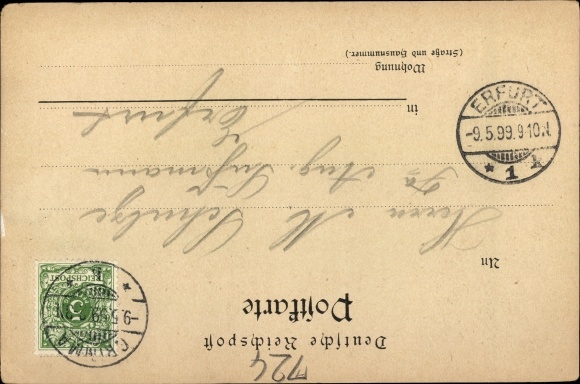 724
Deutsche Reichspost
Postkarte
REICHSPOST
5
An
Herrn M. Schulze
Fa Aug.
in Erfurt
Wohnung
(Straße und Hausnummer.)
GRIMMA
9.5.99
ERFURT
-9.5.99.9-10.V.
* 1 k